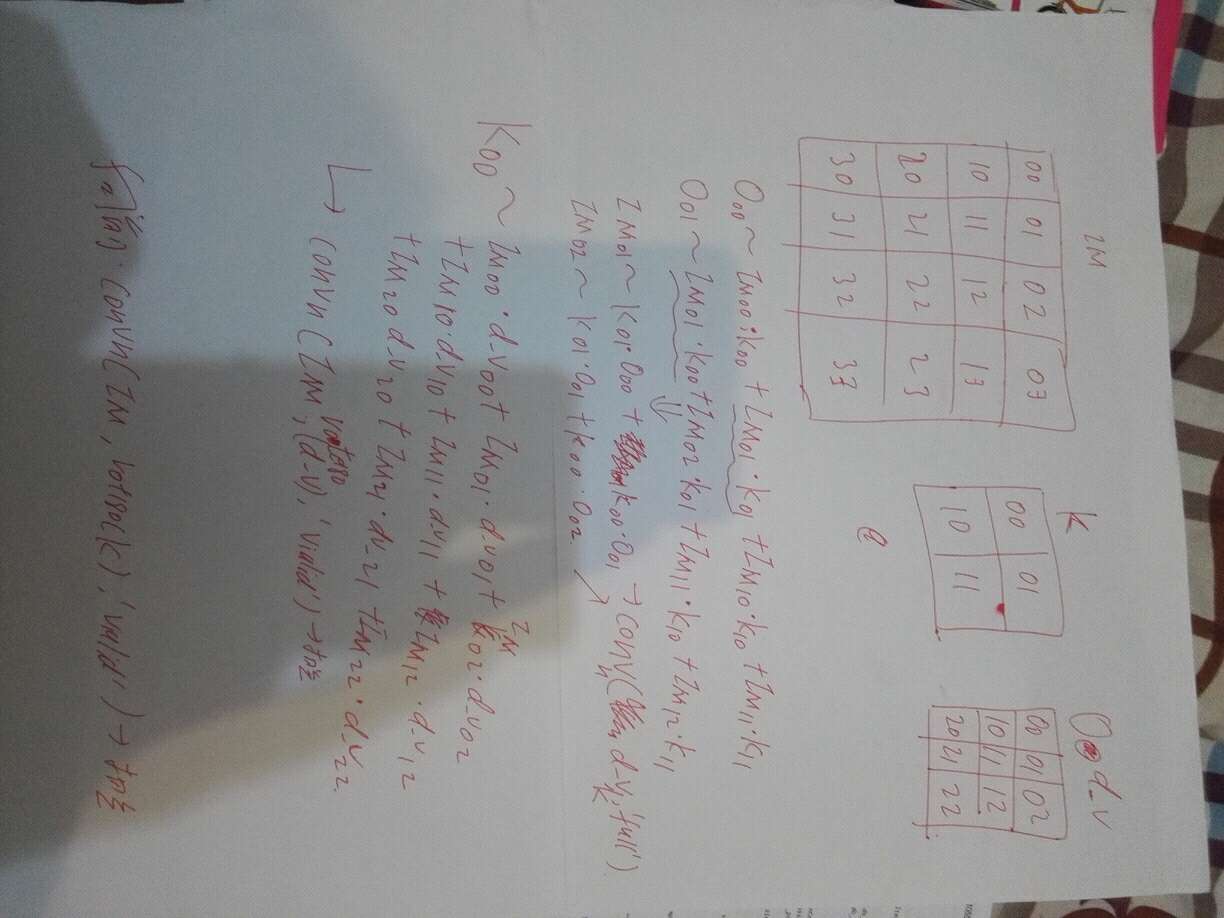 IM
00 01 02 03
10 11 12 13
20 21 22 23
30 31 32 33
k
00 01
10 11
O d_v
00 01 02
10 11 12
20 21 22
O00 ~ IM00·k00 + IM01·k01 + IM10·k10 + IM11·k11
O01 ~ IM01·k00 + IM02·k01 + IM11·k10 + IM12·k11
IM01 ~ k01·O00 + k00·O01 → convn( d_v, k, 'full')
IM02 ~ k01·O01 + k00·O02
k00 ~ IM00·d_v00 + IM01·d_v01 + IM02·d_v02
+ IM10·d_v10 + IM11·d_v11 + IM12·d_v12
+ IM20 d_v20 + IM21·d_v21 + IM22·d_v22
↳ convn(IM, rot180(d_v), 'valid') →
convn(IM, rot180(k), 'valid') →